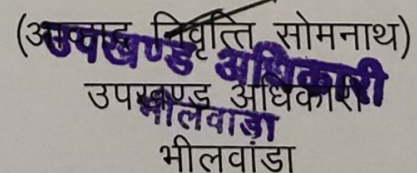 (आव्हाद निवृत्ति सोमनाथ)
उपखण्ड अधिकारी
उपखण्ड अधिकारी
भीलवाडा
भीलवांडा